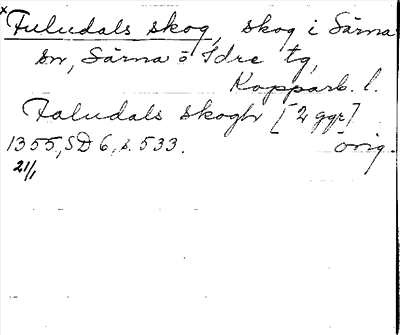 x Fuludals skog, skog i Särna
sn, Särna o Idre tg,
Kopparb. l.
Faludals skoghr [2 ggr]
1355, SD 6, s. 533. orig.
21/1